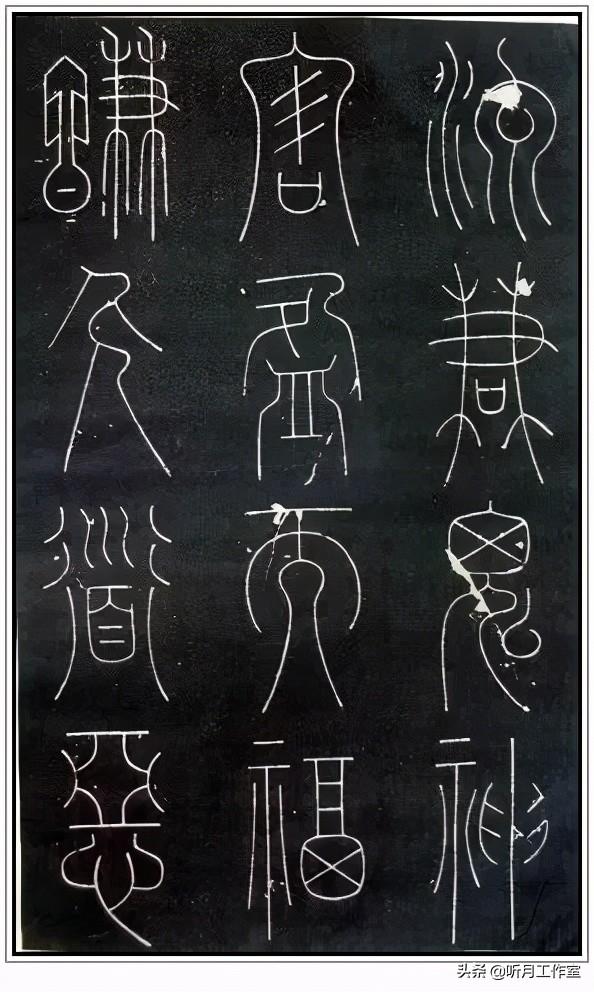 流謙鬼神
害盈而福
謙人道惡
头条 @听月工作室